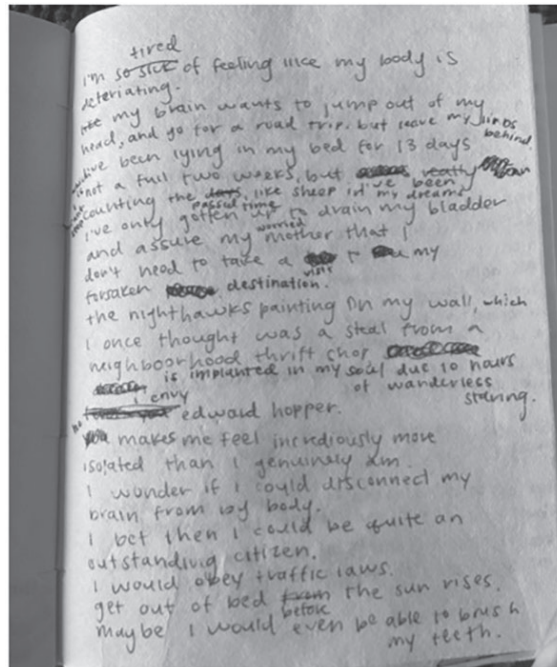 tired
I'm so sick of feeling like my body is
deteriating.
like my brain wants to jump out of my
head, and go for a road trip. but leave my limbs
behind.
I've been lying in my bed for 13 days
not a full two weeks, but really I've been
counting the days, like sheep in my dreams
passed time
I've only gotten up to drain my bladder
and assure my worried mother that I
don't need to take a visit to my
forsaken destination.
the nighthawks painting on my wall, which
I once thought was a steal from a
neighboorhood thrift shop
is implanted in my soul due to hours
of wanderless
staring.
I envy
edward hopper.
he makes me feel incrediously more
isolated than I genuinely am.
I wonder if I could disconnect my
brain from my body.
I bet then I could be quite an
outstanding citizen.
I would obey traffic laws.
get out of bed from the sun rises.
before
maybe I would even be able to brush
my teeth.